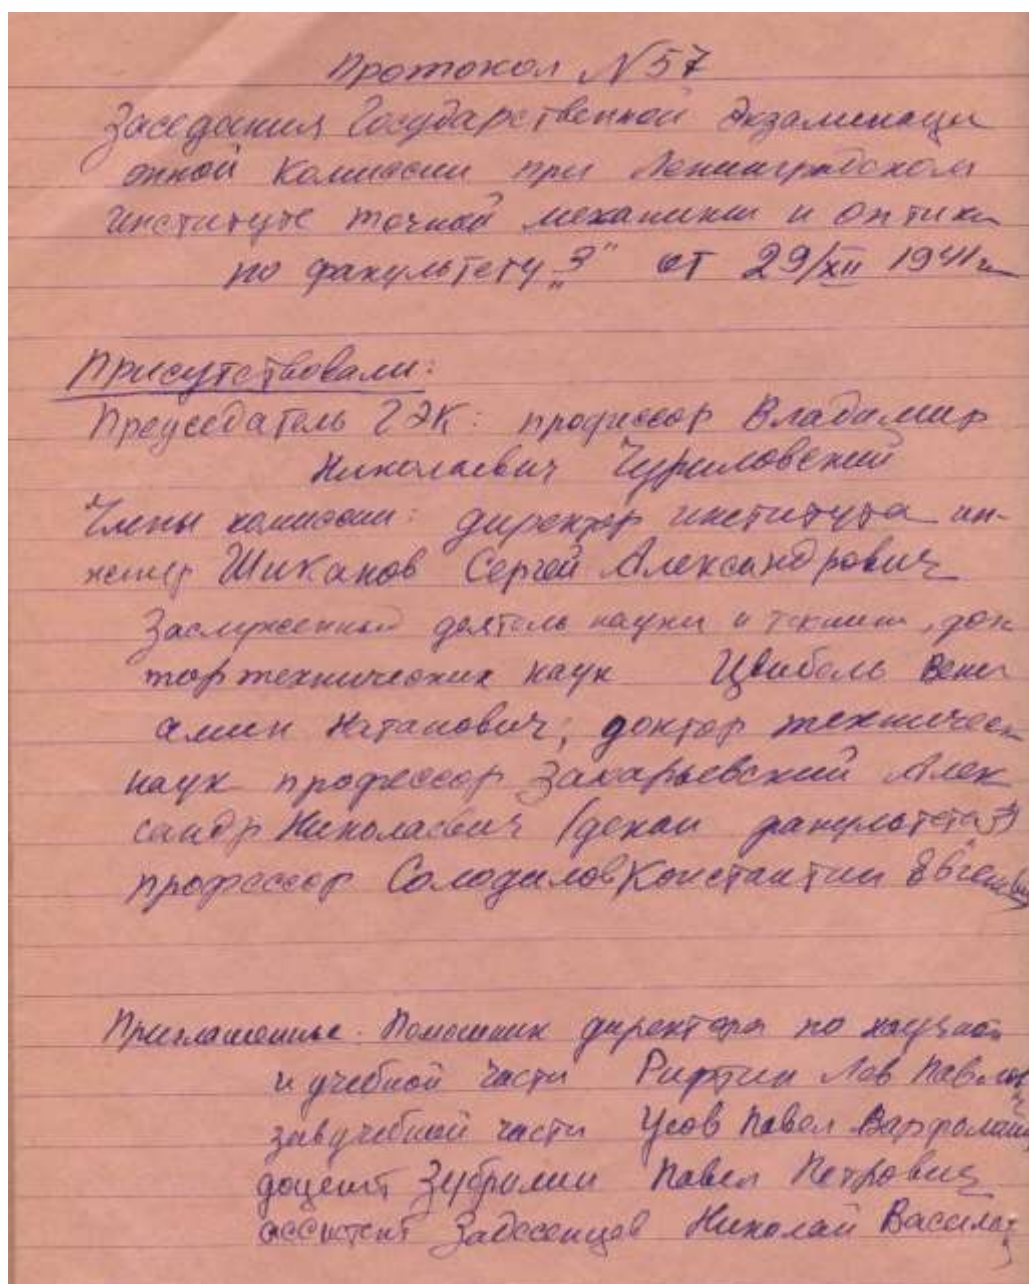 Протокол N 57
Заседания Государственной Экзаменаци
онной Комиссии при Ленинградском
институте точной механики и оптики
по факультету „З" от 29/XII 1941 г
Присутствовали:
Председатель ГЭК: профессор Владимир
Николаевич Чуриловский
Члены комиссии: директор института ин-
женер Шиканов Сергей Александрович
Заслуженный деятель науки и техники, док
тор технических наук Цвибель Вени
амин Натанович; доктор техническ
наук профессор Захарьевский Алек
сандр Николаевич (декан факультета З)
профессор Солодилов Константин Евгеньевич
Приглашенные: Помошник директора по научной
и учебной части Рифтин Лев Павлович
зав учебной части Усов Павел Варфолом
доцент Зубрилин Павел Петрович
ассистент Задесенцев Николай Васильев